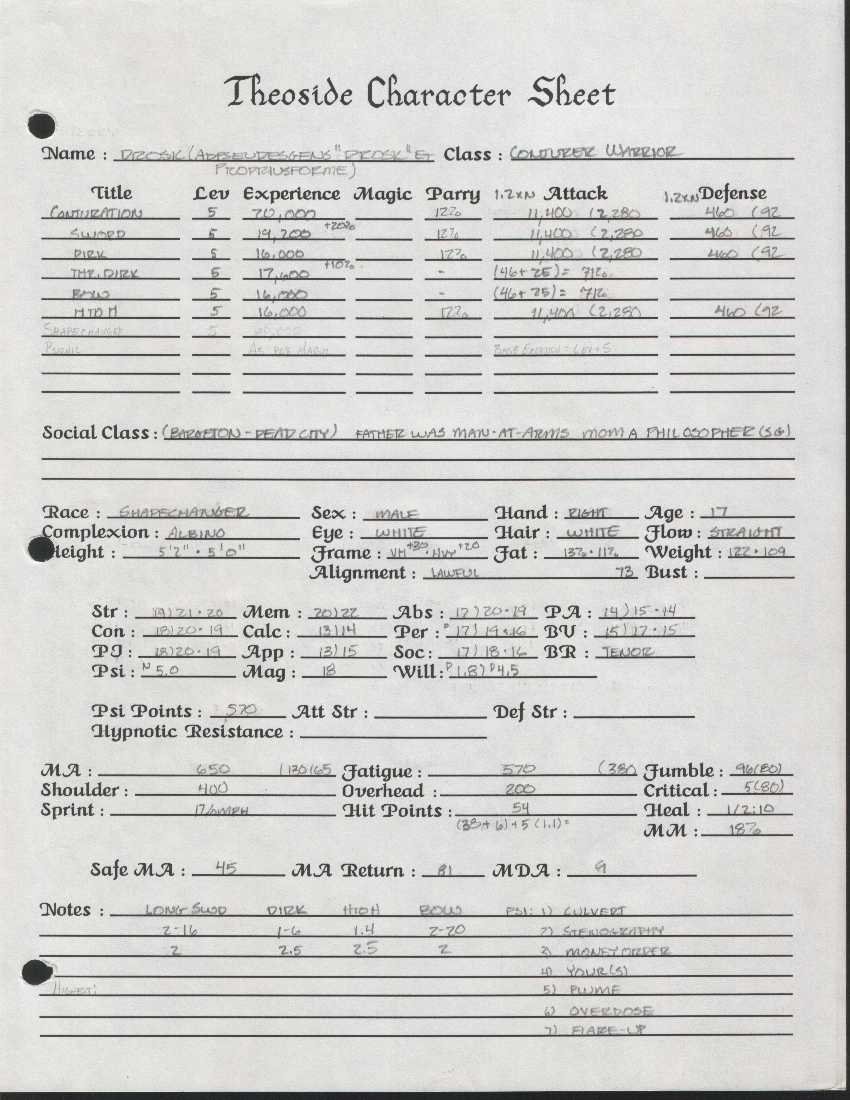 Theoside Character Sheet
Name : DROSK (ADPSEUDESGENS "DROSK" & Class : CONJURER WARRIOR
PROPRIUSFORME)
Title Lev Experience Magic Parry 1.2xN Attack 1.2xN Defense
CONJURATION 5 20,000 12% 11,400 (2,280 460 (92
SWORD 5 19,200 +20% 12% 11,400 (2,280 460 (92
DIRK 5 16,000 12% 11,400 (2,280 460 (92
THR. DIRK 5 17,600 +10% - (46+25)= 71%
BOW 5 16,000 - (46+25)= 71%
H TO H 5 16,000 12% 11,400 (2,280 460 (92
SHAPECHANGER 5
PSIONIC AS PER MAGIC
Social Class : (BARGETON - DEAD CITY) FATHER WAS MAN-AT-ARMS MOM A PHILOSOPHER (SG)
Race : SHAPECHANGER Sex : MALE Hand : RIGHT Age : 17
Complexion : ALBINO Eye : WHITE Hair : WHITE Flow : STRAIGHT
Height : 5'2" • 5'0" Frame : VH+30 • HVY+20 Fat : 13% • 11% Weight : 122 • 109
Alignment : LAWFUL 73 Bust :
Str : 19) 21 • 20 Mem : 20) 22 Abs : 17) 20 • 19 PA : 14) 15 • 14
Con : 18) 20 • 19 Calc : 13) 14 Per : P 17) 19 • 16 BV : 15) 17 • 15
PJ : 18) 20 • 19 App : 13) 15 Soc : 17) 18 • 16 BR : TENOR
Psi : N 5.0 Mag : 18 Will : P 1.8) P 4.5
Psi Points : 570 Att Str : Def Str :
Hypnotic Resistance :
MA : 650 (130 (65 Fatigue : 570 (380 Fumble : 96(80)
Shoulder : 400 Overhead : 200 Critical : 5(80)
Sprint : 17.6 MPH Hit Points : 54 Heal : 1/2:10
(38+6)+5(1.1)= MM : 18%
Safe MA : 45 MA Return : 81 MDA : 9
Notes : LONG SWD DIRK H TO H BOW PSI: 1) CULVERT
2-16 1-6 1.4 2-20 2) STENOGRAPHY
2 2.5 2.5 2 3) MONEY ORDER
4) YOUR(S)
HIGHEST: 5) PLUME
6) OVERDOSE
7) FLARE-UP